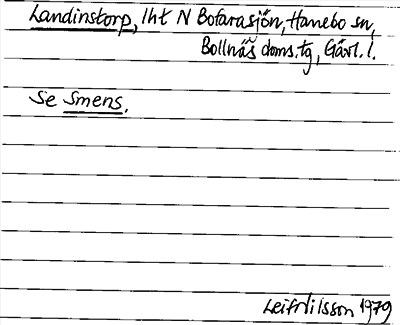 Landinstorp, lht N Bofarasjön, Hanebo sn,
Bollnäs doms.tg, Gävl. l.
Se Smens.
Leif Nilsson 1979